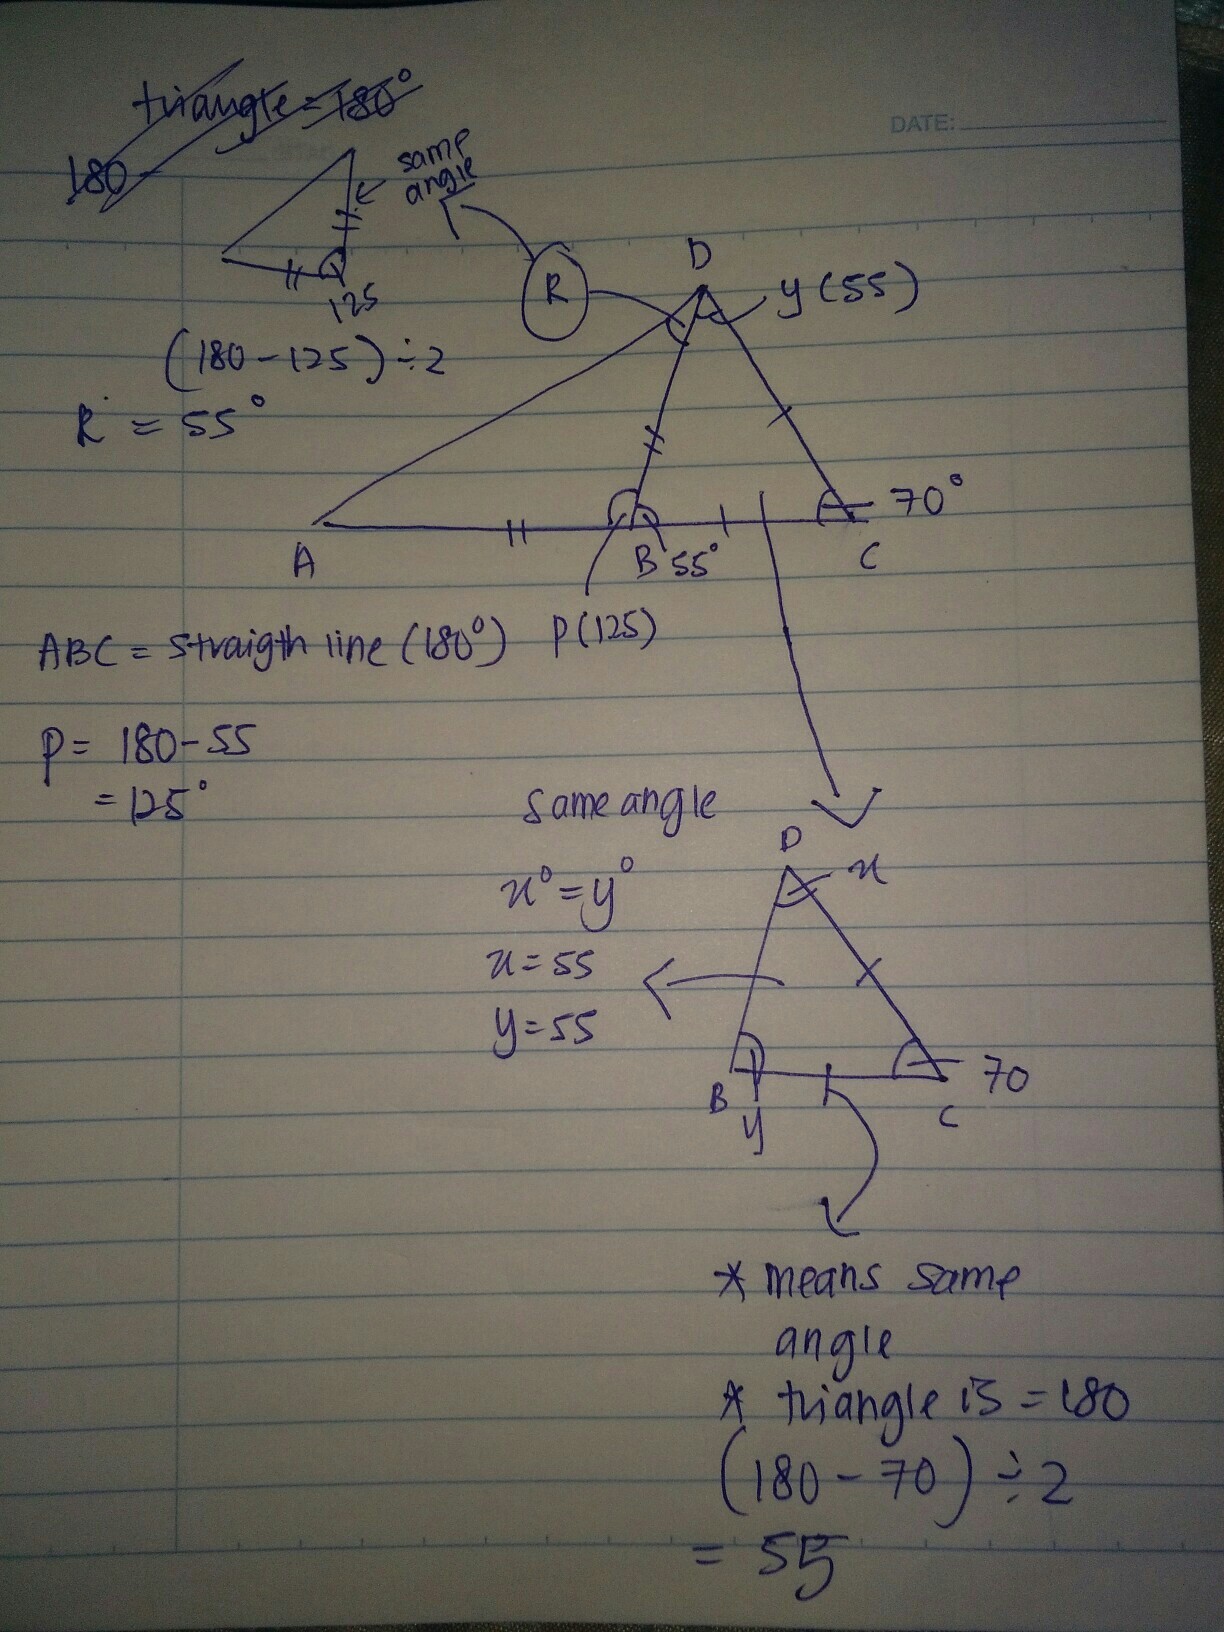 triangle = 180°
180 -
DATE:
same
angle
125
(180 - 125) ÷ 2
R = 55°
R
D
y (55)
70°
A
B 55°
C
P(125)
ABC = straigth line (180°)
P = 180 - 55
= 125°
same angle
x° = y°
x = 55
y = 55
D
x
B
y
70
C
* means same
angle
* triangle is = 180
(180 - 70) ÷ 2
= 55